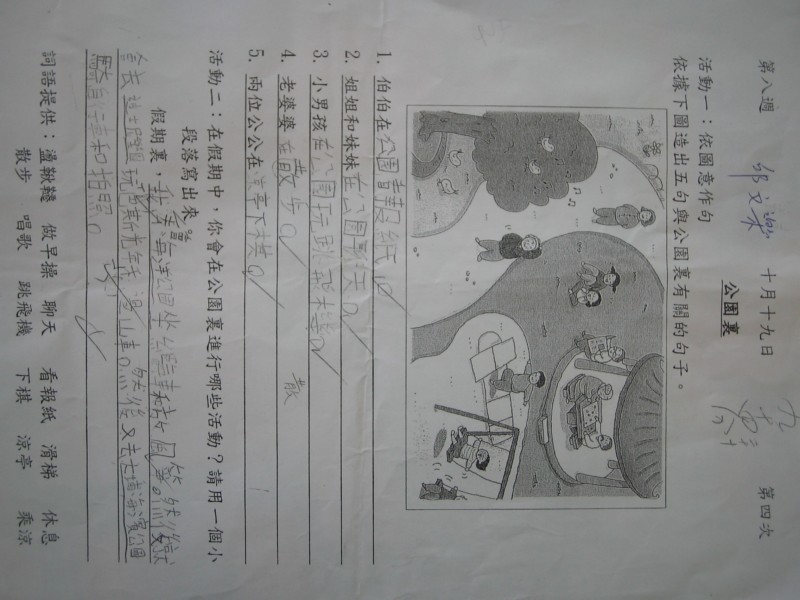 第八週 十月十九日 第四次
公園裏
活動一：依圖意作句
依據下圖造出五句與公園裏有關的句子。
1. 伯伯在公園看報紙。
2. 姐姐和妹妹在公園聊天。
3. 小男孩在公園玩跳飛機。
4. 老婆婆在散步。
散
5. 兩位公公在涼亭下棋。
活動二：在假期中，你會在公園裏進行哪些活動？請用一個小
段落寫出來。
假期裏，我會去海洋公園坐纜車和 然後
會去 公園玩 然後又去大埔海濱公園
騎自行車和拍照。
詞語提供：盪鞦韆 做早操 聊天 看報紙 滑梯 休息
散步 唱歌 跳飛機 下棋 涼亭 乘涼